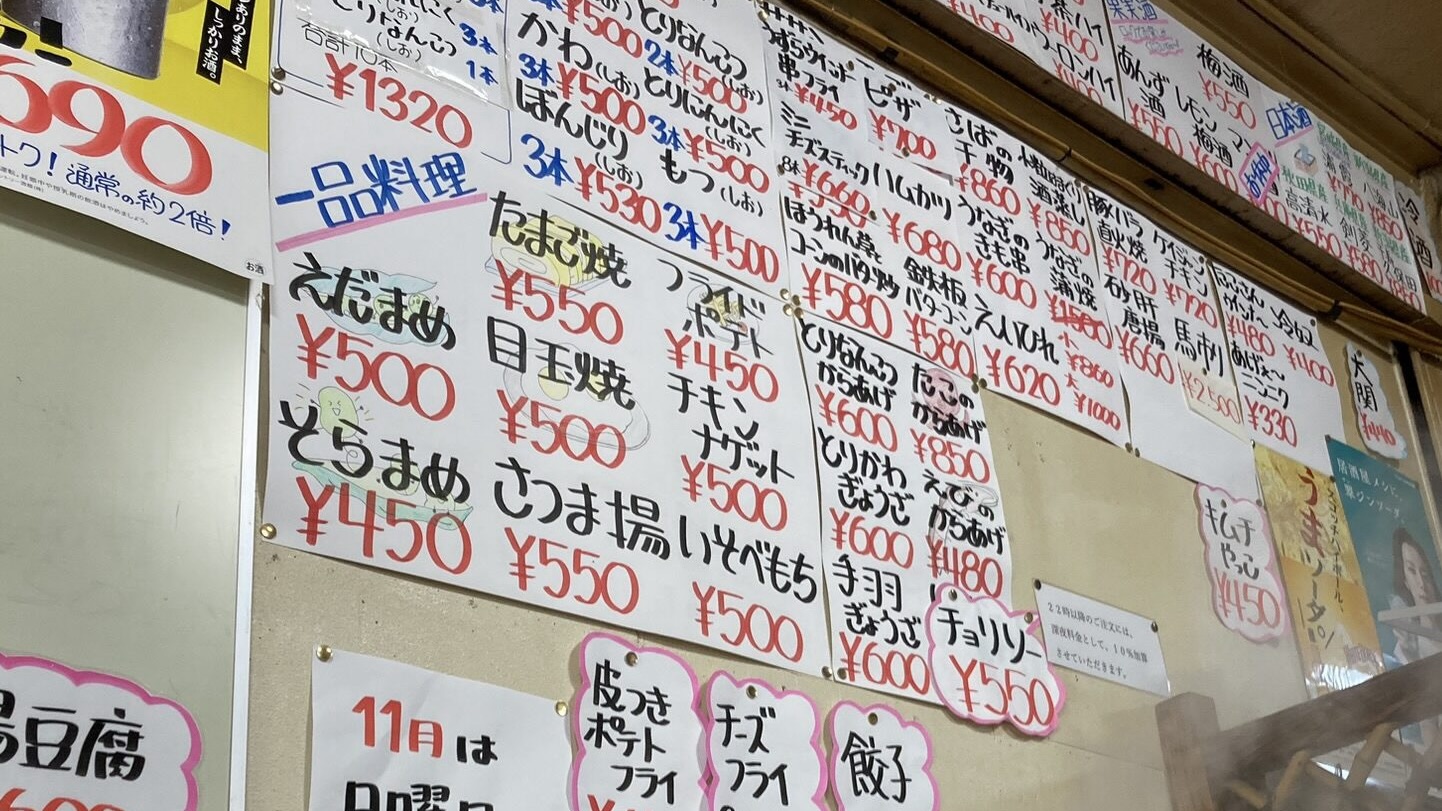 ありのまま、
しっかりお酒。
690
通常の約2倍!
お酒
とりなんこつ
(しお)
3本
1本
合計10本
¥1320
¥500
かわ(しお)
3本¥500
ぼんじり
(しお)
3本¥530
とりなんこつ
(しお)
2本¥500
とりにんにく
(しお)
3本¥500
もつ(しお)
3本¥500
一品料理
えだまめ
¥500
そらまめ
¥450
たまご焼
¥550
目玉焼
¥500
さつま揚
¥550
フライド
ポテト
¥450
チキン
ナゲット
¥500
いそべもち
¥500
串フライ
¥450
ピザ
¥700
ミニ
チーズスティック
8本¥660
ハムカツ
¥680
ほうれん草
コーンのバター炒
¥580
鉄板
バターコーン
¥580
さばの
干物
¥860
酒蒸し
¥850
うなぎの
きも串
¥600
うなぎの
蒲焼
¥860
大
¥1000
えいひれ
¥620
とりなんこつ
からあげ
¥600
たこの
からあげ
¥850
とりかわ
ぎょうざ
¥600
えびの
からあげ
¥480
手羽
ぎょうざ
¥600
チョリソー
¥550
豚バラ
直火焼
¥720
ケイジャン
チキン
¥720
砂肝
唐揚
¥660
馬刺
¥2500
¥480
冷奴
¥400
ニンニク
¥330
¥400
梅酒
¥550
あんず
酒
¥550
レモン
梅酒
¥600
日本酒
秋田県産
高清水
¥550
八海山
¥850
剣菱
¥580
冷酒
大関
¥440
キムチ
やっこ
¥450
22時以降のご注文には、
深夜料金として、10%加算
させていただきます。
うまソーダ!
居酒屋メシに、
翠ジンソーダ。
湯豆腐
11月は
日曜日
皮つき
ポテト
フライ
チーズ
フライ
餃子